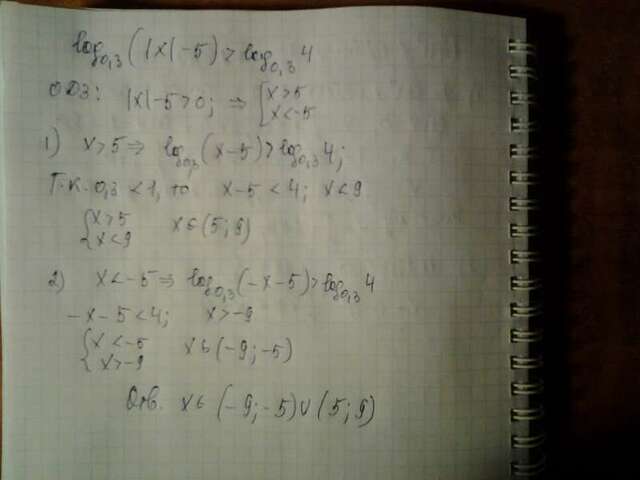 log₀,₃(|x|-5) > log₀,₃4
ОДЗ: |x|-5>0; ⇒ [x>5 x<-5
1) x>5 ⇒ log₀,₃(x-5)>log₀,₃4;
Т.к. 0,3<1, то x-5<4; x<9
{x>5 x<9 x∈(5;9)
2) x<-5 ⇒ log₀,₃(-x-5)>log₀,₃4
-x-5<4; x>-9
{x<-5 x>-9 x∈(-9;-5)
Отв. x∈(-9;-5)∪(5;9)